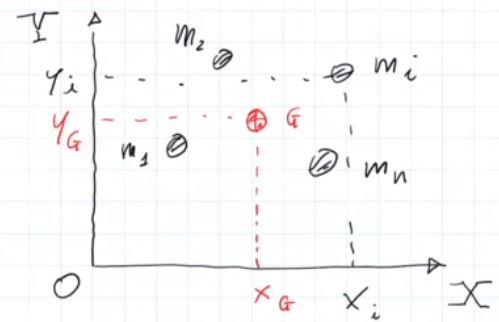 Y
m₂
yᵢ
mᵢ
y_G
G
m₁
mₙ
O
x_G
xᵢ
X